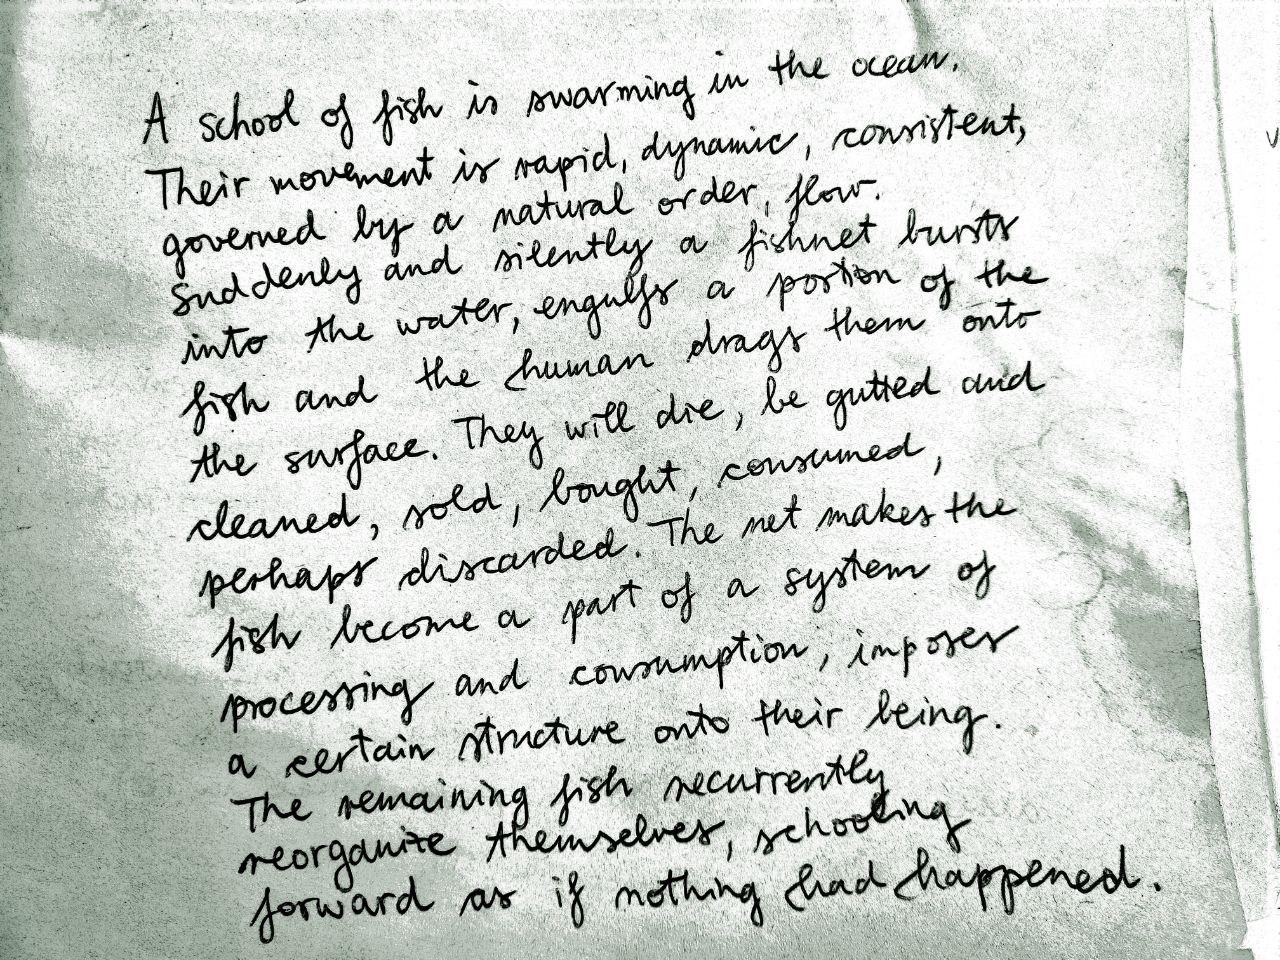 A school of fish is swarming in the ocean.
Their movement is rapid, dynamic, consistent,
governed by a natural order, flow.
Suddenly and silently a fishnet bursts
into the water, engulfs a portion of the
fish and the human drags them onto
the surface. They will die, be gutted and
cleaned, sold, bought, consumed,
perhaps discarded. The net makes the
fish become a part of a system of
processing and consumption, imposes
a certain structure onto their being.
The remaining fish recurrently
reorganize themselves, schooling
forward as if nothing had happened.